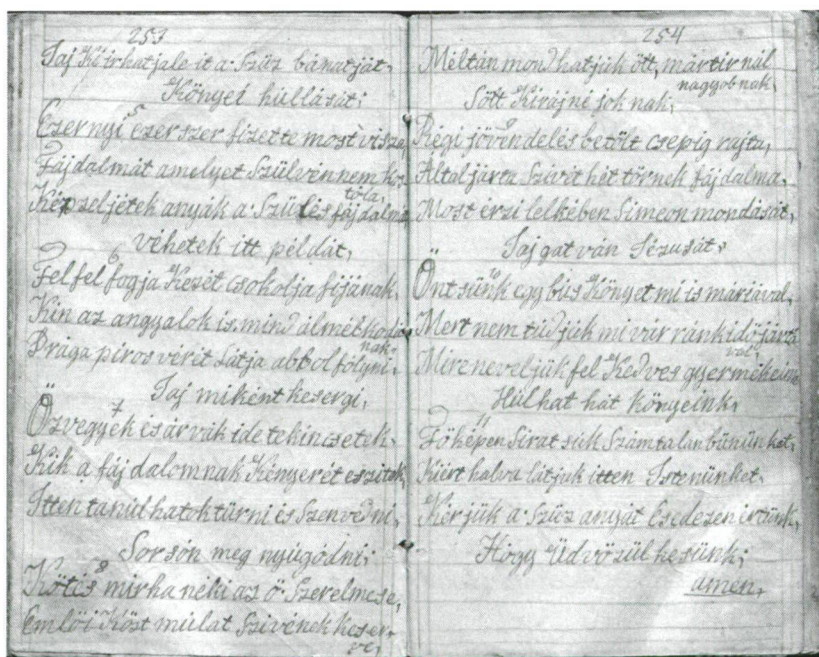 253
Jaj Ki irhatja le it a Szűz bánatját,
Könyei hüllását;
5
Ezernyi ezerszer fizette most visza,
Fájdalmát amelyet Szülvén nem
tőla,
Képzeljétek anyák a Szülés
véhetek itt példát,
6
Fel fel fogja Kezét csokolja fijának,
Kin az angyalok is mind álmélkodá
nak.
Drága piros vérét Látja abbol fólyni,
Jaj miként kesergi,
7
Özvegyek és árvák ide tekincsetek,
Kik a fájdalomnak Kényerét eszitek,
Itten tanúlhatok türni és Szenvedni,
Sorsón meg nyúgódni;
8
Kötis mirha néki az ő Szerelmese,
Emlői Köst múlat Szivének keser,
ve,
254
Méltán mondhatjúk őtt, mártirnál
nagyobnak,
Sött Kirájné joknak,
9
Régi jövendelés betőlt csepig rajta,
Által járta Szivit hét tőrnek fájdalma,
Most érzi lelkében Simeon mondását,
Jajgatván Jézusát,
10
Öntsünk egy bús Könyet mi is máriával,
Mert nem tudjúk mi vár ránk idő járta
val,
Mire neveljúk fel Kedves gyermékeink
Húlhat hát könyeink,
11
Főképen Siratsúk Számtalan bűnünket,
Kiért halva látjuk itten Istenünket,
Kérjúk a Szűz anyát Esedezen értünk,
Hógy Üdvözülhesünk;
amen,